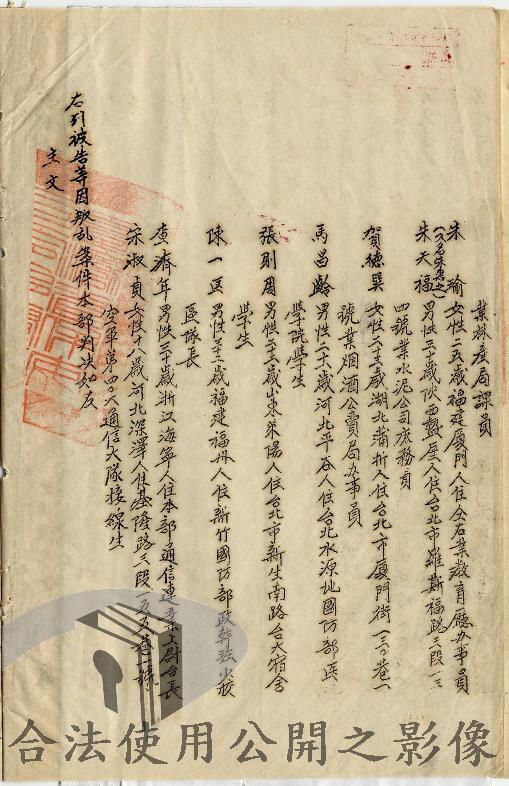 業林產局課員
朱瑜 女性二五歲福建廈門人住仝右業教育廳办事員
朱天福 男性三十歲陝西盩厔人住台北市羅斯福路三段一三
四號業水泥公司庶務員
賀德巽 女性二十三歲湖北蒲圻人住台北市廈門街一三〇巷一
號業烟酒公賣局办事員
馬昌齡 男性二十六歲河北平谷人住台北水源地國防部兵
學院學生
張則周 男性二十三歲山東萊陽人住台北市新生南路台大宿舍
學生
陳一匡 男性三十三歲福建福州人住新竹國防部政幹班少校
區隊長
查濟年 男性三十歲浙江海寧人住本部通信連業上尉台長
宋淑貞 女性十八歲河北深澤人住基隆路三段一五五巷一號
空軍第四〇六通信大隊接線生
右列被告等因叛乱案件本部判決如左
主文
合法使用公開之影像